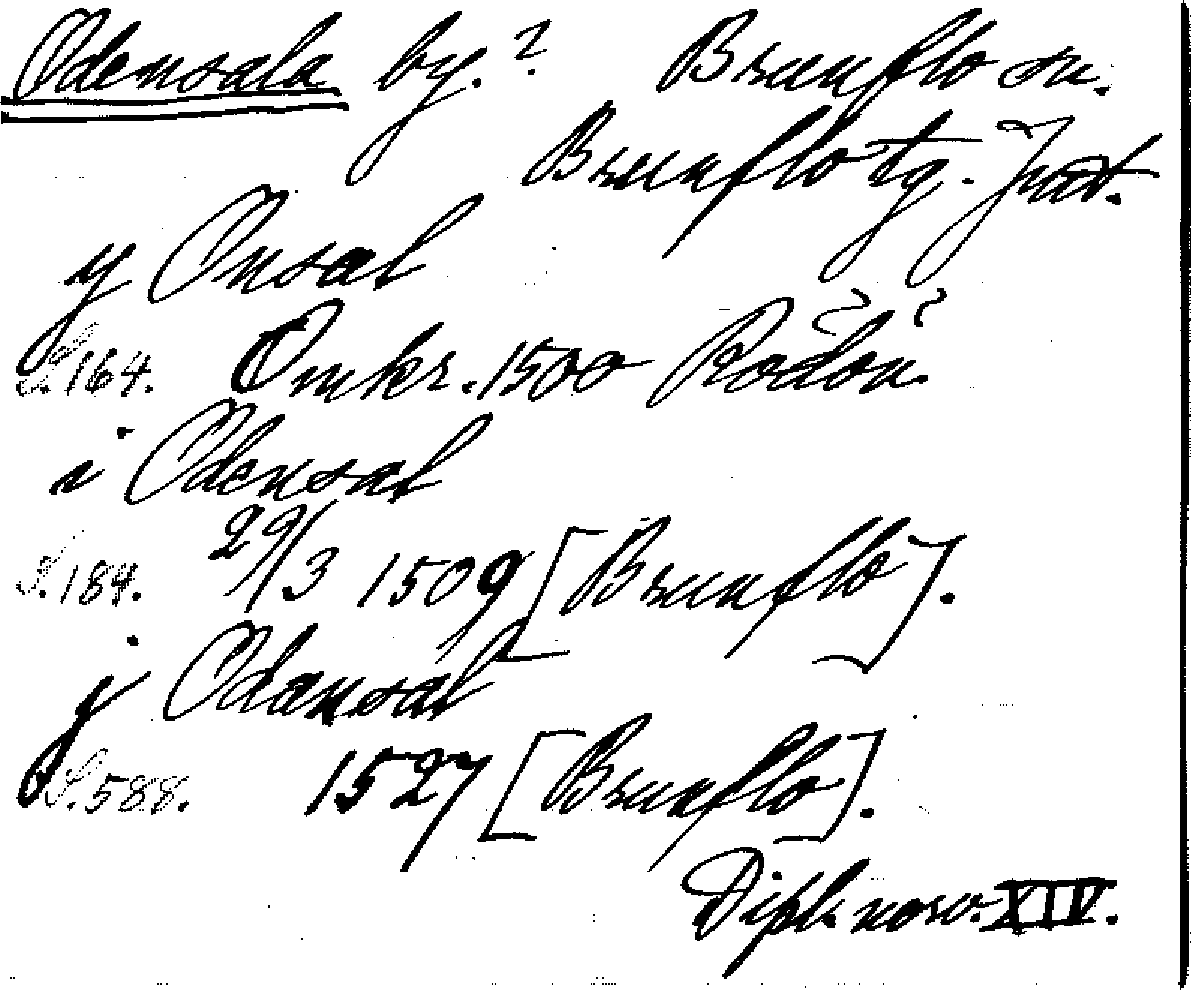 Odensala by.? Brunflo sn.
Brunflo tg. Jmt.
y Onsal
S.164. Omkr. 1500 Rödön.
i Odensal
S.184. 29/3 1509 [Brunflo].
j Odansal
S.588. 1527 [Brunflo].
Dipl. norv. XIV.